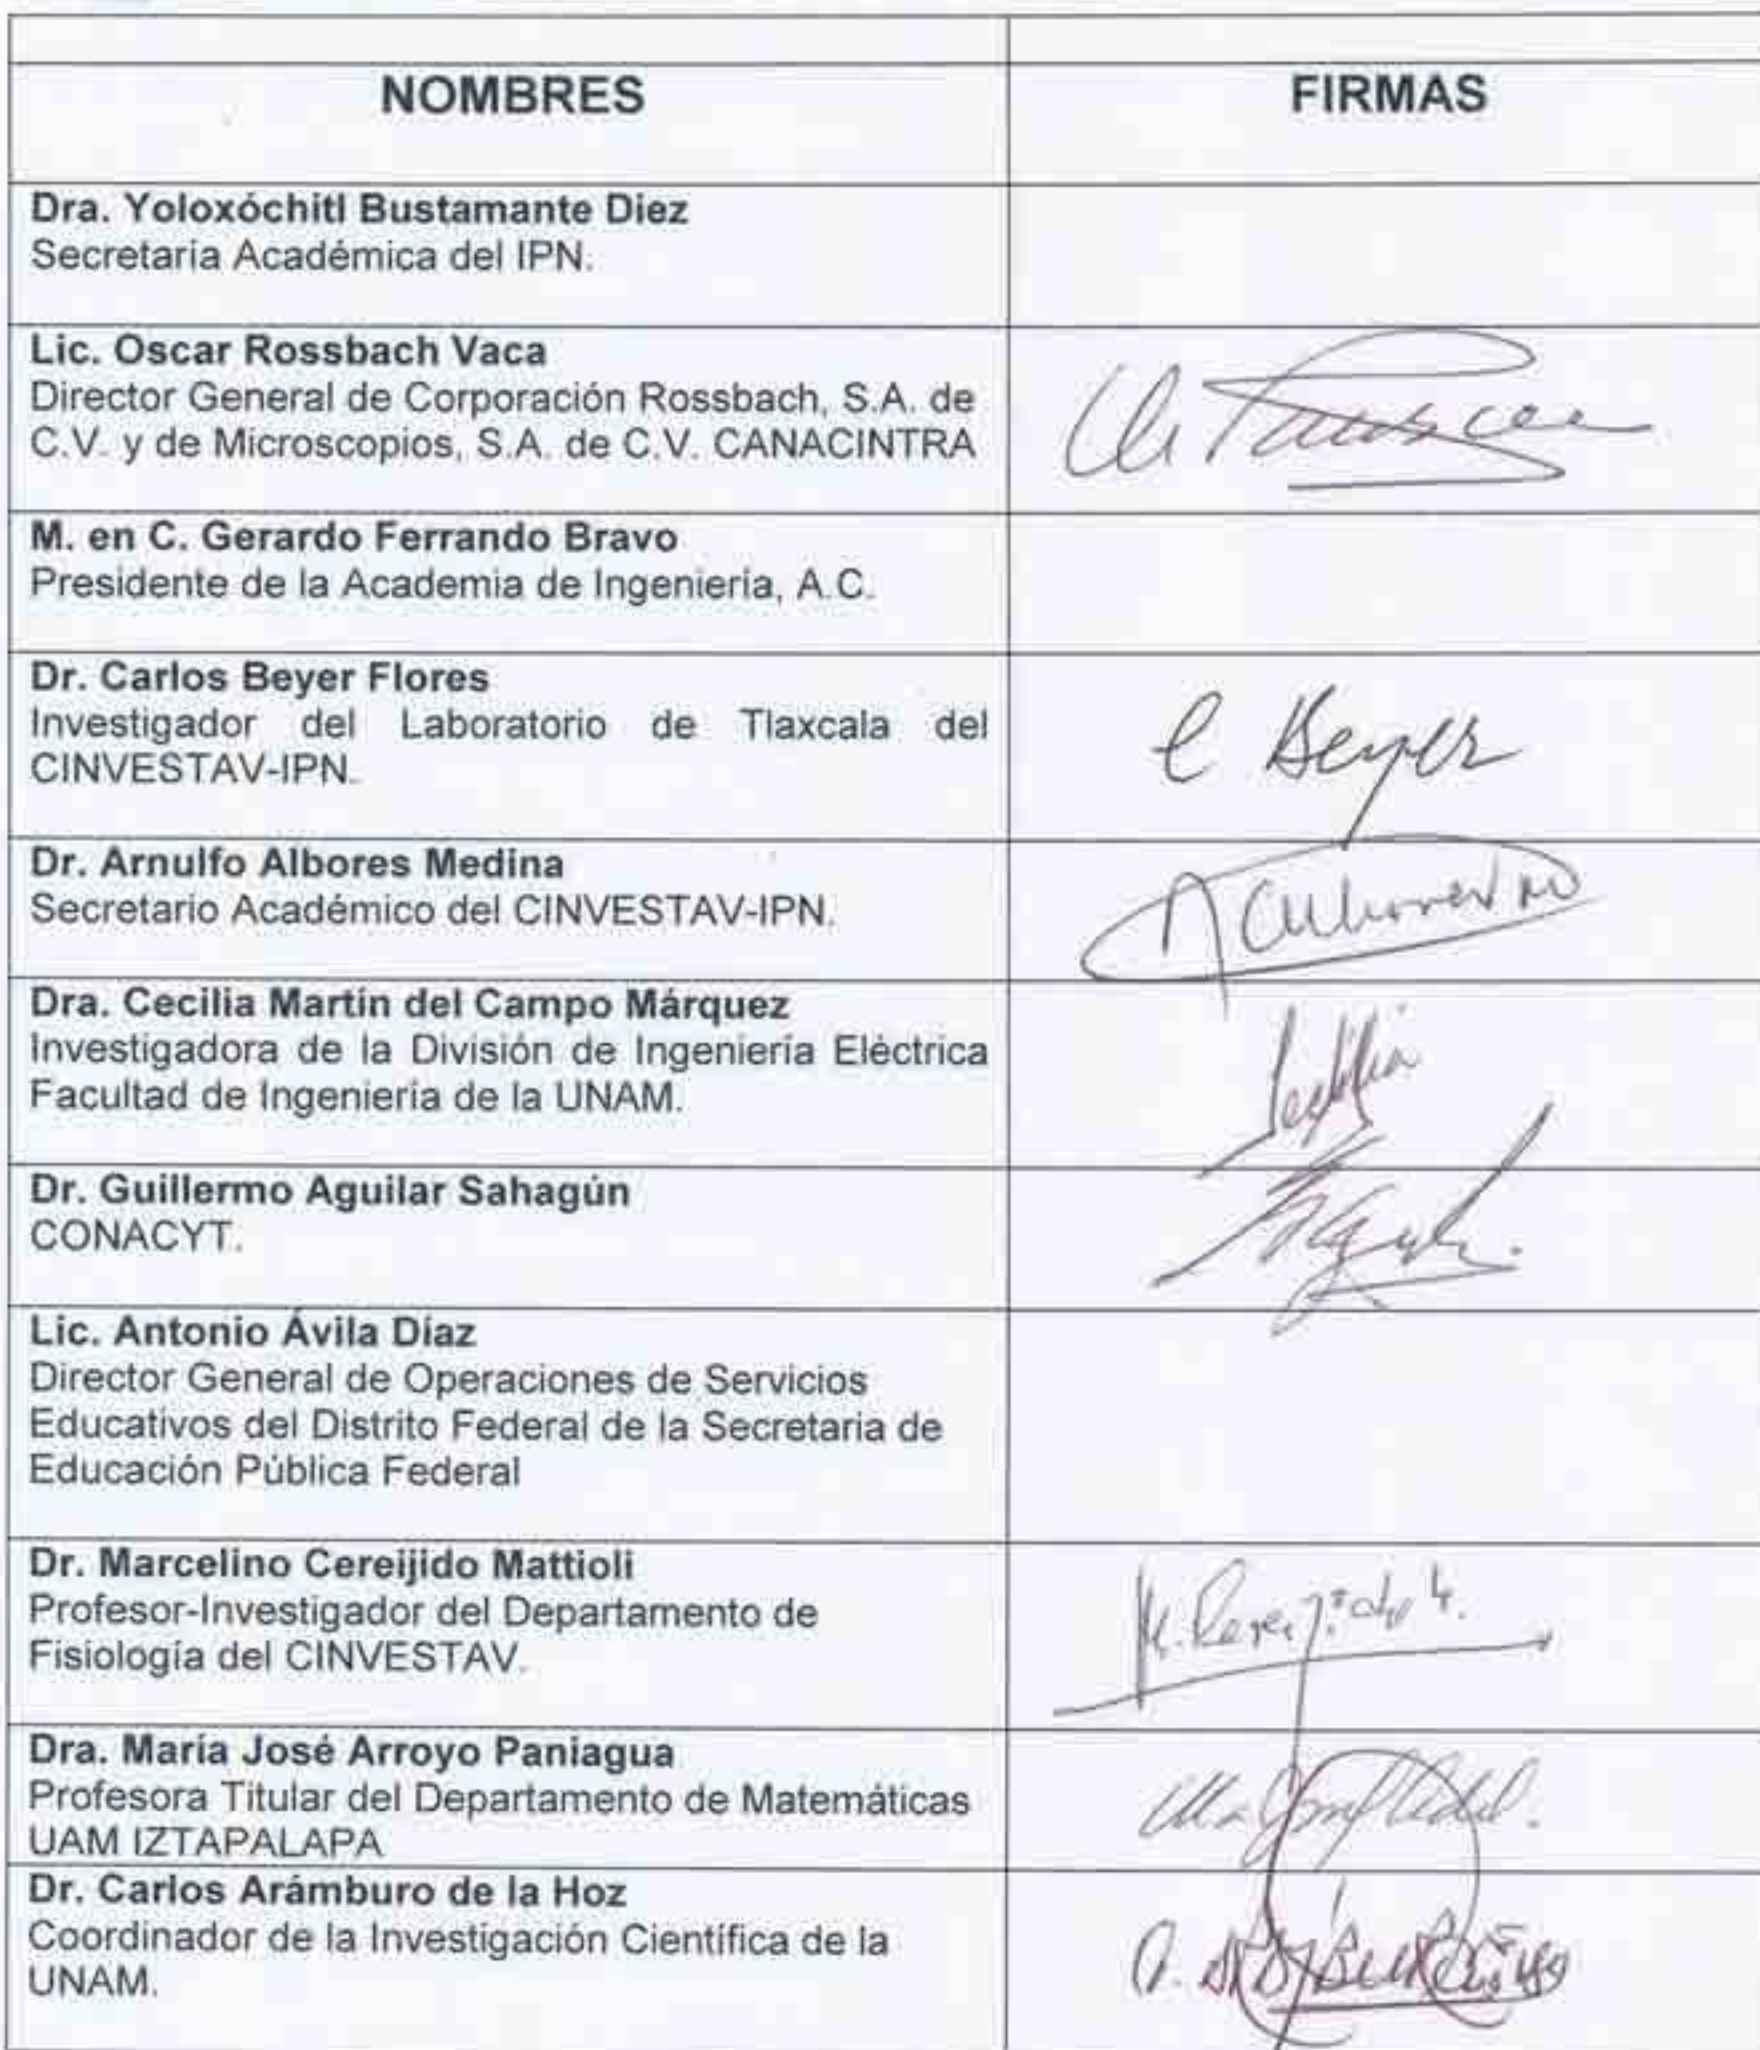 NOMBRES FIRMAS
Dra. Yoloxóchitl Bustamante Diez
Secretaría Académica del IPN.
Lic. Oscar Rossbach Vaca
Director General de Corporación Rossbach, S.A. de
C.V. y de Microscopios, S.A. de C.V. CANACINTRA
M. en C. Gerardo Ferrando Bravo
Presidente de la Academia de Ingeniería, A.C.
Dr. Carlos Beyer Flores
Investigador del Laboratorio de Tlaxcala del
CINVESTAV-IPN.
C Beyer
Dr. Arnulfo Albores Medina
Secretario Académico del CINVESTAV-IPN.
Dra. Cecilia Martín del Campo Márquez
Investigadora de la División de Ingeniería Eléctrica
Facultad de Ingeniería de la UNAM.
Dr. Guillermo Aguilar Sahagún
CONACYT.
Lic. Antonio Ávila Díaz
Director General de Operaciones de Servicios
Educativos del Distrito Federal de la Secretaria de
Educación Pública Federal
Dr. Marcelino Cereijido Mattioli
Profesor-Investigador del Departamento de
Fisiología del CINVESTAV.
Dra. María José Arroyo Paniagua
Profesora Titular del Departamento de Matemáticas
UAM IZTAPALAPA
Dr. Carlos Arámburo de la Hoz
Coordinador de la Investigación Científica de la
UNAM.